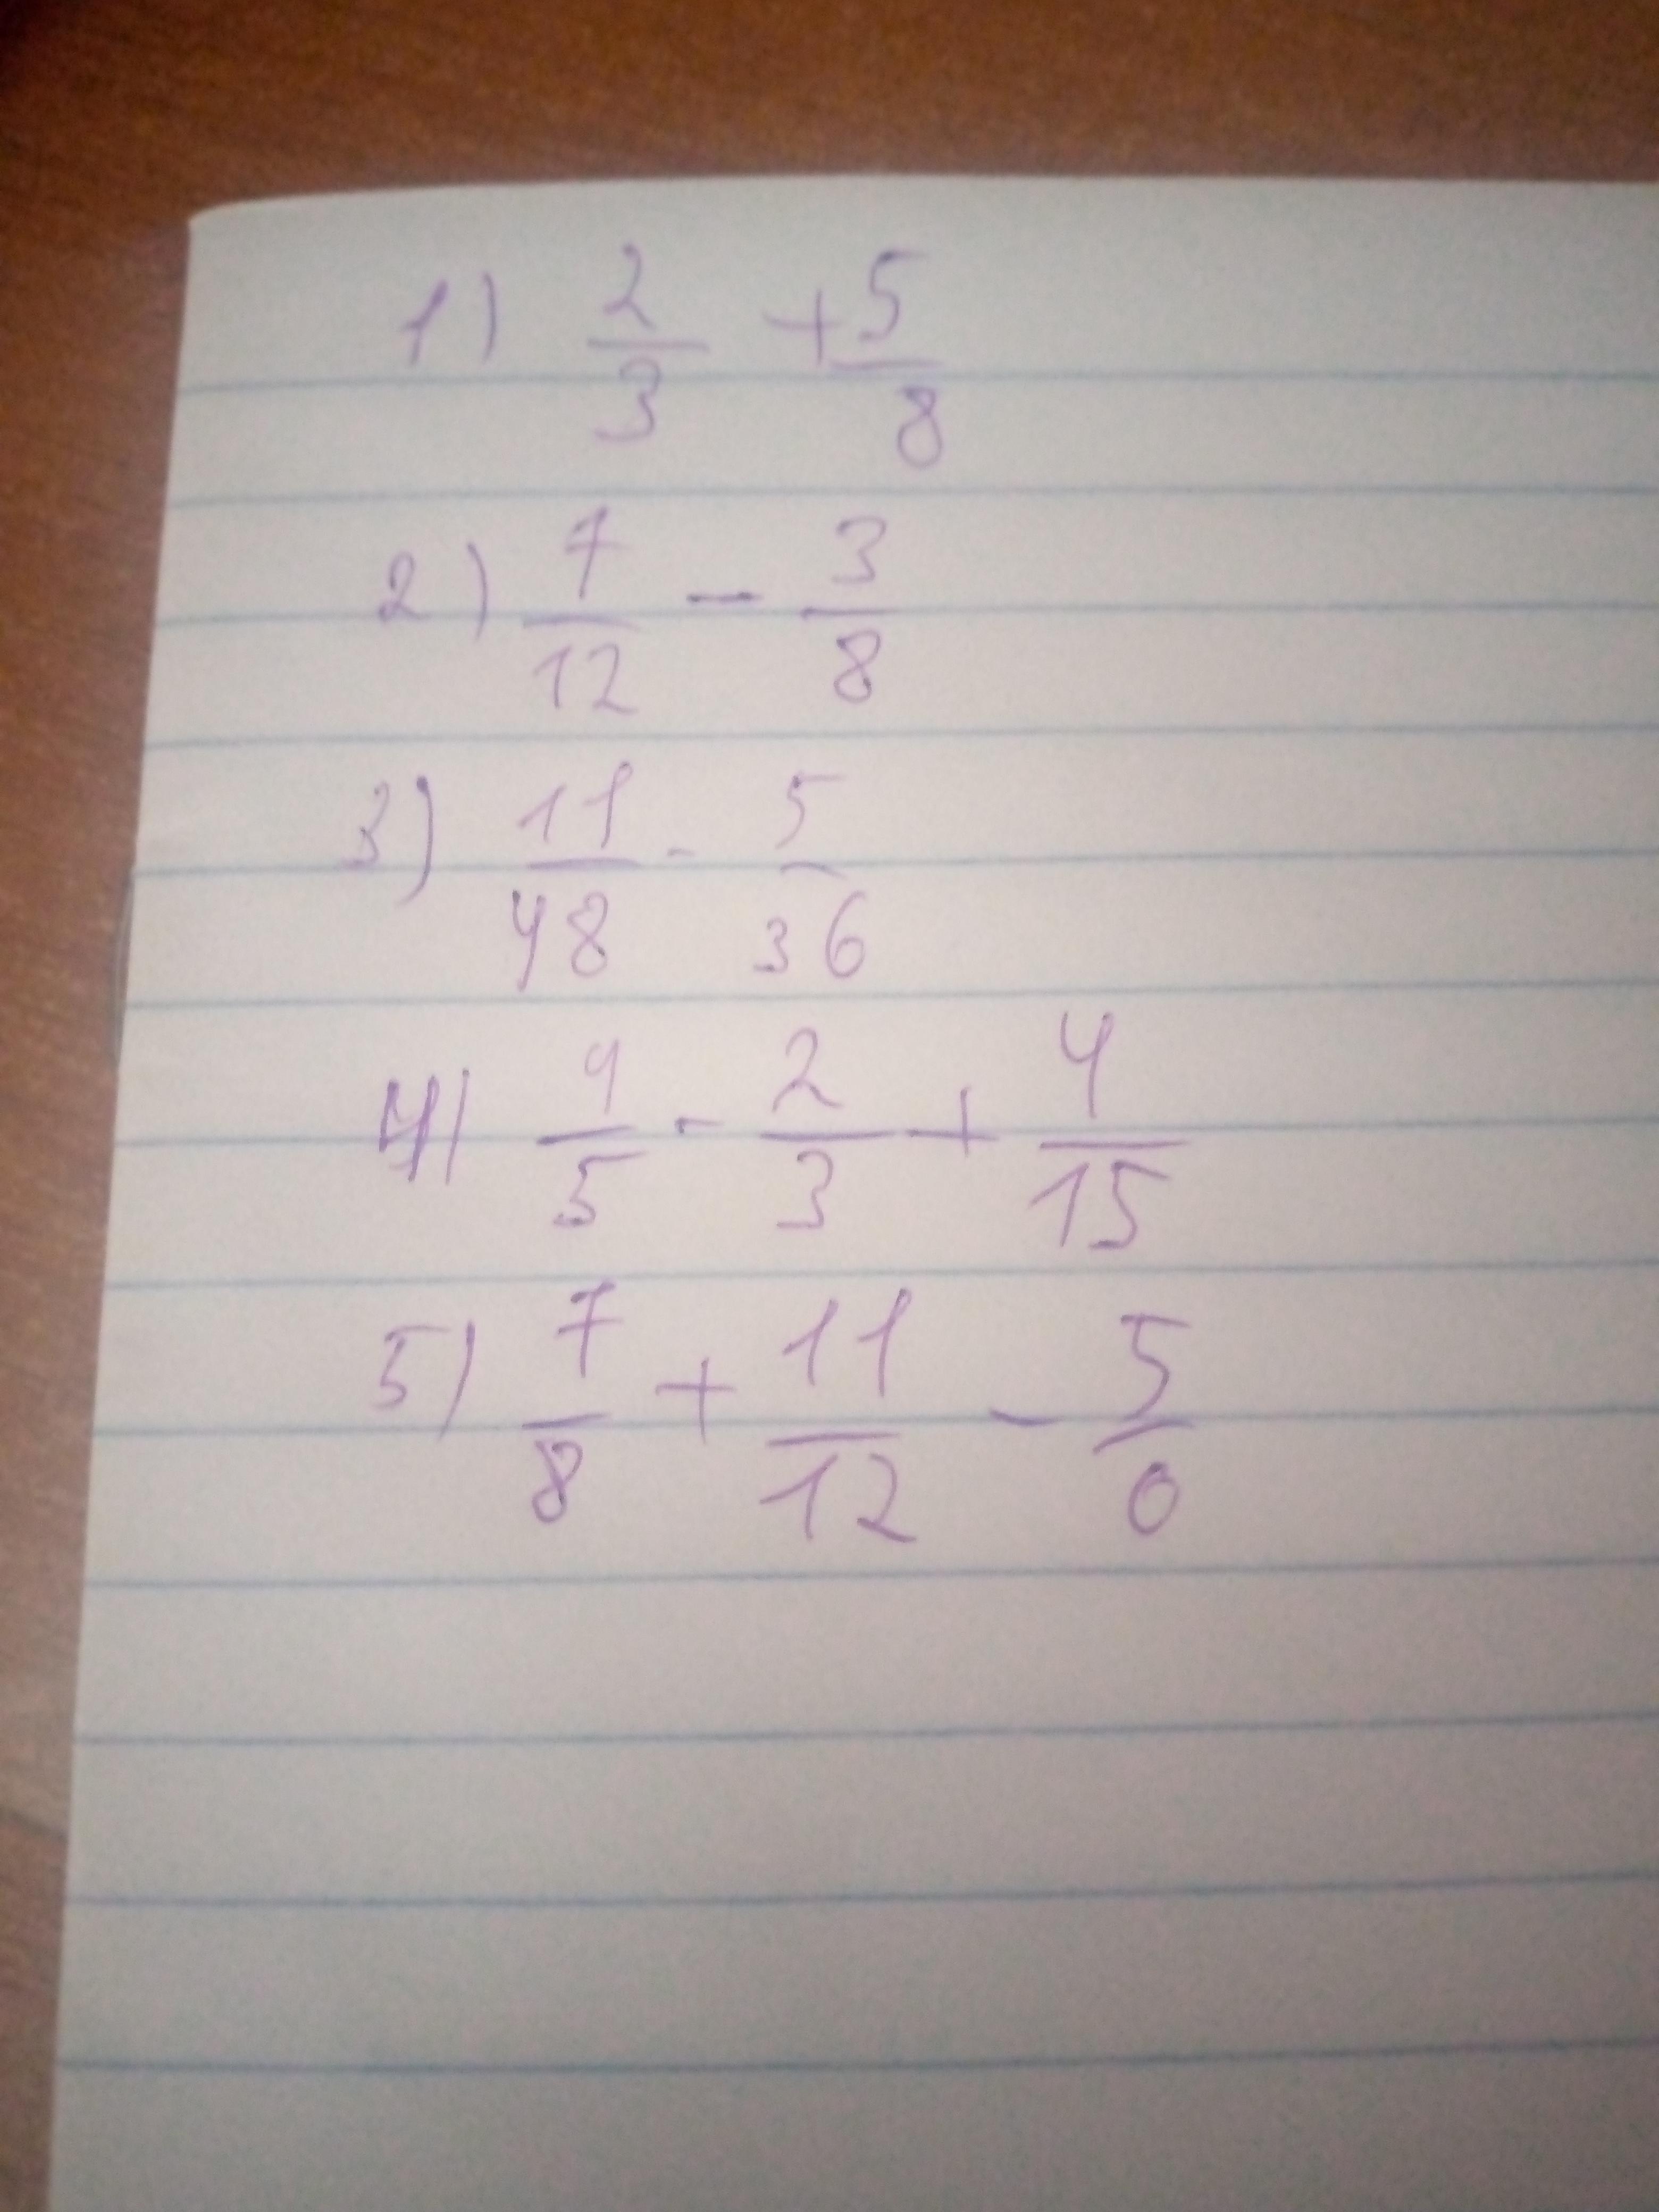 1) 2/3 + 5/8
2) 7/12 - 3/8
3) 11/48 - 5/36
4) 9/5 - 2/3 + 4/15
5) 7/8 + 11/12 - 5/0